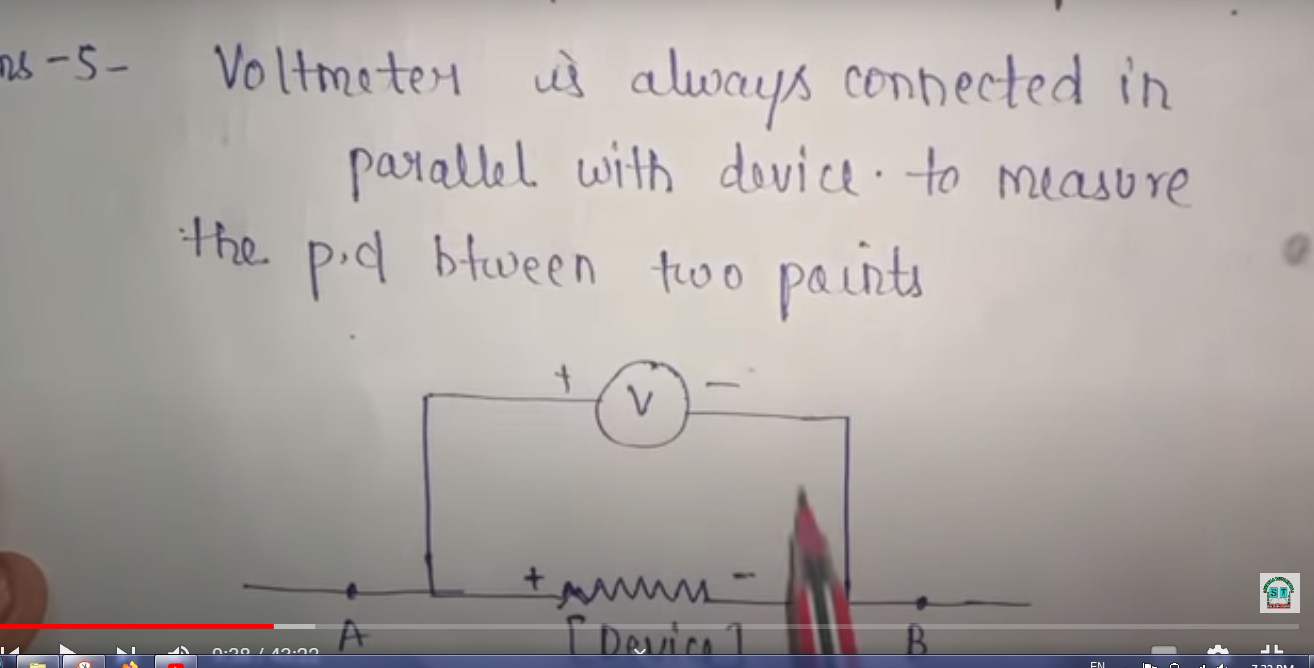 ns -5- Voltmeter is always connected in
parallel with device. to measure
the p.d btween two points
+ V -
+ -
A [Device] B
ST
EN